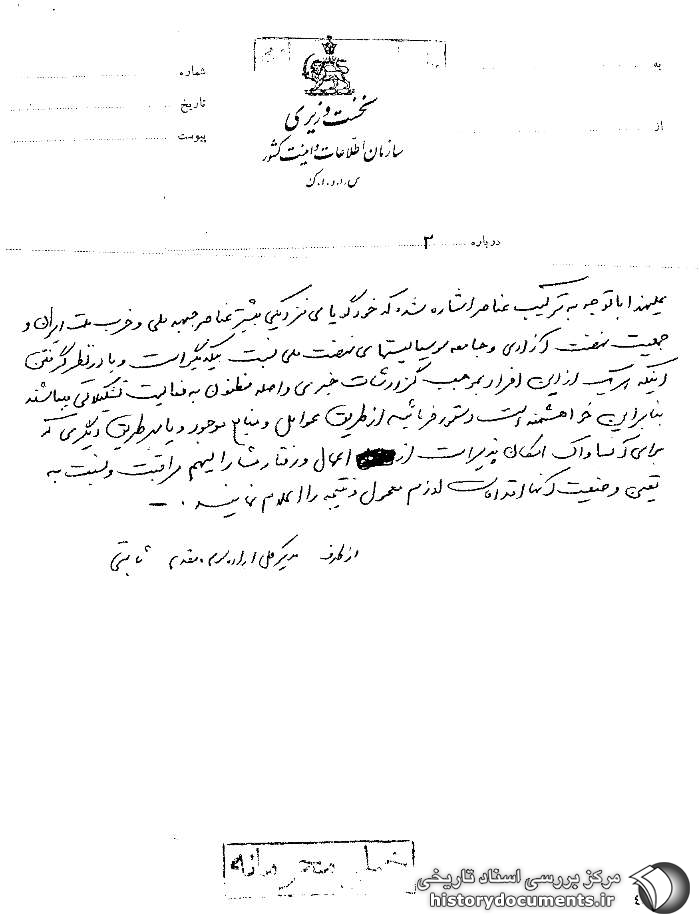 به
شماره
نخست وزیری
تاریخ
از
سازمان اطلاعات و امنیت کشور
پیوست
س.ا.و.ا.ک
درباره ۳
علیهذا با توجه به ترکیب عناصر اشاره شده که خود گویای نزدیکی بیشتر عناصر جبهه ملی و حزب ملت ایران و
جمعیت نهضت آزادی و جامعه سوسیالیستهای نهضت ملی نسبت بیکدیگر است و با در نظر گرفتن
اینکه هر یک از این افراد بموجب گزارشات خبری واصله مظنون به فعالیت تشکیلاتی میباشند
بنابراین خواهشمند است دستور فرمائید از طریق عوامل و منابع موجود و یا هر طریق دیگری که
برای آن ساواک امکان پذیر است از اعمال و رفتار مشارالیهم مراقبت و نسبت به
تعیین وضعیت آنها اقدامات لازم معمول و نتیجه را اعلام نمایند . –
از طرف مدیر کل اداره سوم . مقدم ثابتی
خیلی محرمانه
مرکز بررسی اسناد تاریخی
historydocuments.ir